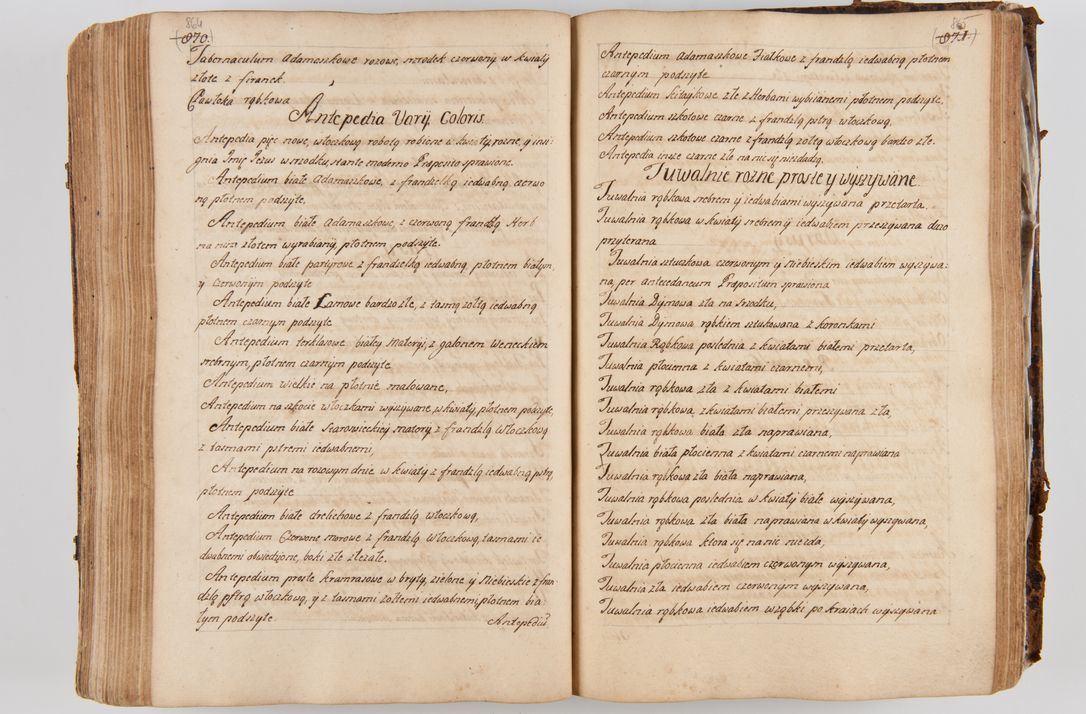 864
(870.)
Tabernaculum Adamaszkowe rozowe, srzodek czerwony w kwiaty
złote z firanek.
Pawłoka rąbkowa
Antepedia Varij Coloris.
Antepedia pięc nowe, włoczkową robotą robione z kwiaty rozne, y insi-
gnia Imię Jezus w srzodku, stante moderno Præposito sprawione.
Antepedium białe Adamaszkowe, z frandzelką iedwabną czerwo
ną płotnem podszyte.
Antepedium białe Adamaszkowe, z czerwoną frandzlą Herb
na nim złotem wyrabiany, płotnem podszyte.
Antepedium białe partyrowe z frandzelką iedwabną, płotnem białym,
y czerwonym podszyte
Antepedium białe Lamowe bardzo złe, z tasmą zołtą iedwabną
płotnem czarnym podszyte
Antepedium terklasowe białey materyi, z galonem Weneckiem
srebrnym, płotnem czarnym podszyte.
Antepedium wielkie na płotnie malowane,
Antepedium na szkocie włoczkami wyszywane w kwiaty, płotnem podszyte,
Antepedium białe materyi z frandzlą włoczkową
z tasmami pstremi iedwabnemi,
Antepedium na rozowym dnie w kwiaty z frandzlą iedwabną pstrą,
płotnem podszyte
Antepedium białe drelichowe z frandzlą włoczkową,
Antepedium Czerwone z frandzlą włoczkową, tasmami ie
dwabnemi obwiedzone, boki złe zlezałe.
Antepedium proste kramrasowe w bryty, zielone y Niebieskie z fran-
dzlą pstrą włoczkową, y z tasmami zołtemi iedwabnemi płotnem bia-
łym podszyte.
Antepediũ
865
(871.)
Antepedium Adamaszkowe Fiałkowe z frandzlą iedwabną, płotnem
czarnym podszyte
Antepedium Kitaykowe złe z Herbami wybitanemi płotnem podszyte,
Antepedium szkotowe czarne z frandzlą pstrą włoczkową,
Antepedium szkotowe czarne z frandzlą zołtą włoczkową bardzo złe.
Antepedia insze czarne złe na nic się niezdadzą.
Tuwalnie rozne proste y wyszywane.
Tuwalnia rąbkowa srebrem y iedwabiami wyszywana przetarta.
Tuwalnia rąbkowa w kwiaty srebrem y iedwabiem przeszywana
przytorana
Tuwalnia sztuczkowa czerwonym y Niebieskim iedwabiem wyszywa-
na, per antecedaneum Præpositum sprawiona
Tuwalnia Dymowa zła na srzodku,
Tuwalnia Dymowa rąbkiem sztukowana z koronkami
Tuwalnia Rąbkowa poslednia z kwiatami białemi przetarta,
Tuwalnia płocienna z kwiatami czarnemi,
Tuwalnia rąbkowa zła z kwiatami białemi
Tuwalnia rąbkowa, z kwiatami białemi, przeszywana zła,
Tuwalnia rąbkowa biała zła naprawiana,
Tuwalnia biała płocienna z kwiatami czarnemi naprawiana
Tuwalnia rąbkowa zła biała naprawiana,
Tuwalnia rąbkowa poslednia w kwiaty białe wyszywana,
Tuwalnia rąbkowa zła biała naprawiana w kwiaty wyszywana,
Tuwalnia rąbkowa ktora się na nic niezda,
Tuwalnia płocienna iedwabiem czerwonym wyszywana,
Tuwalnia zła iedwabiem czerwonym wyszywana,
Tuwalnia rąbkowa iedwabiem wząbki po kraiach wyszywana